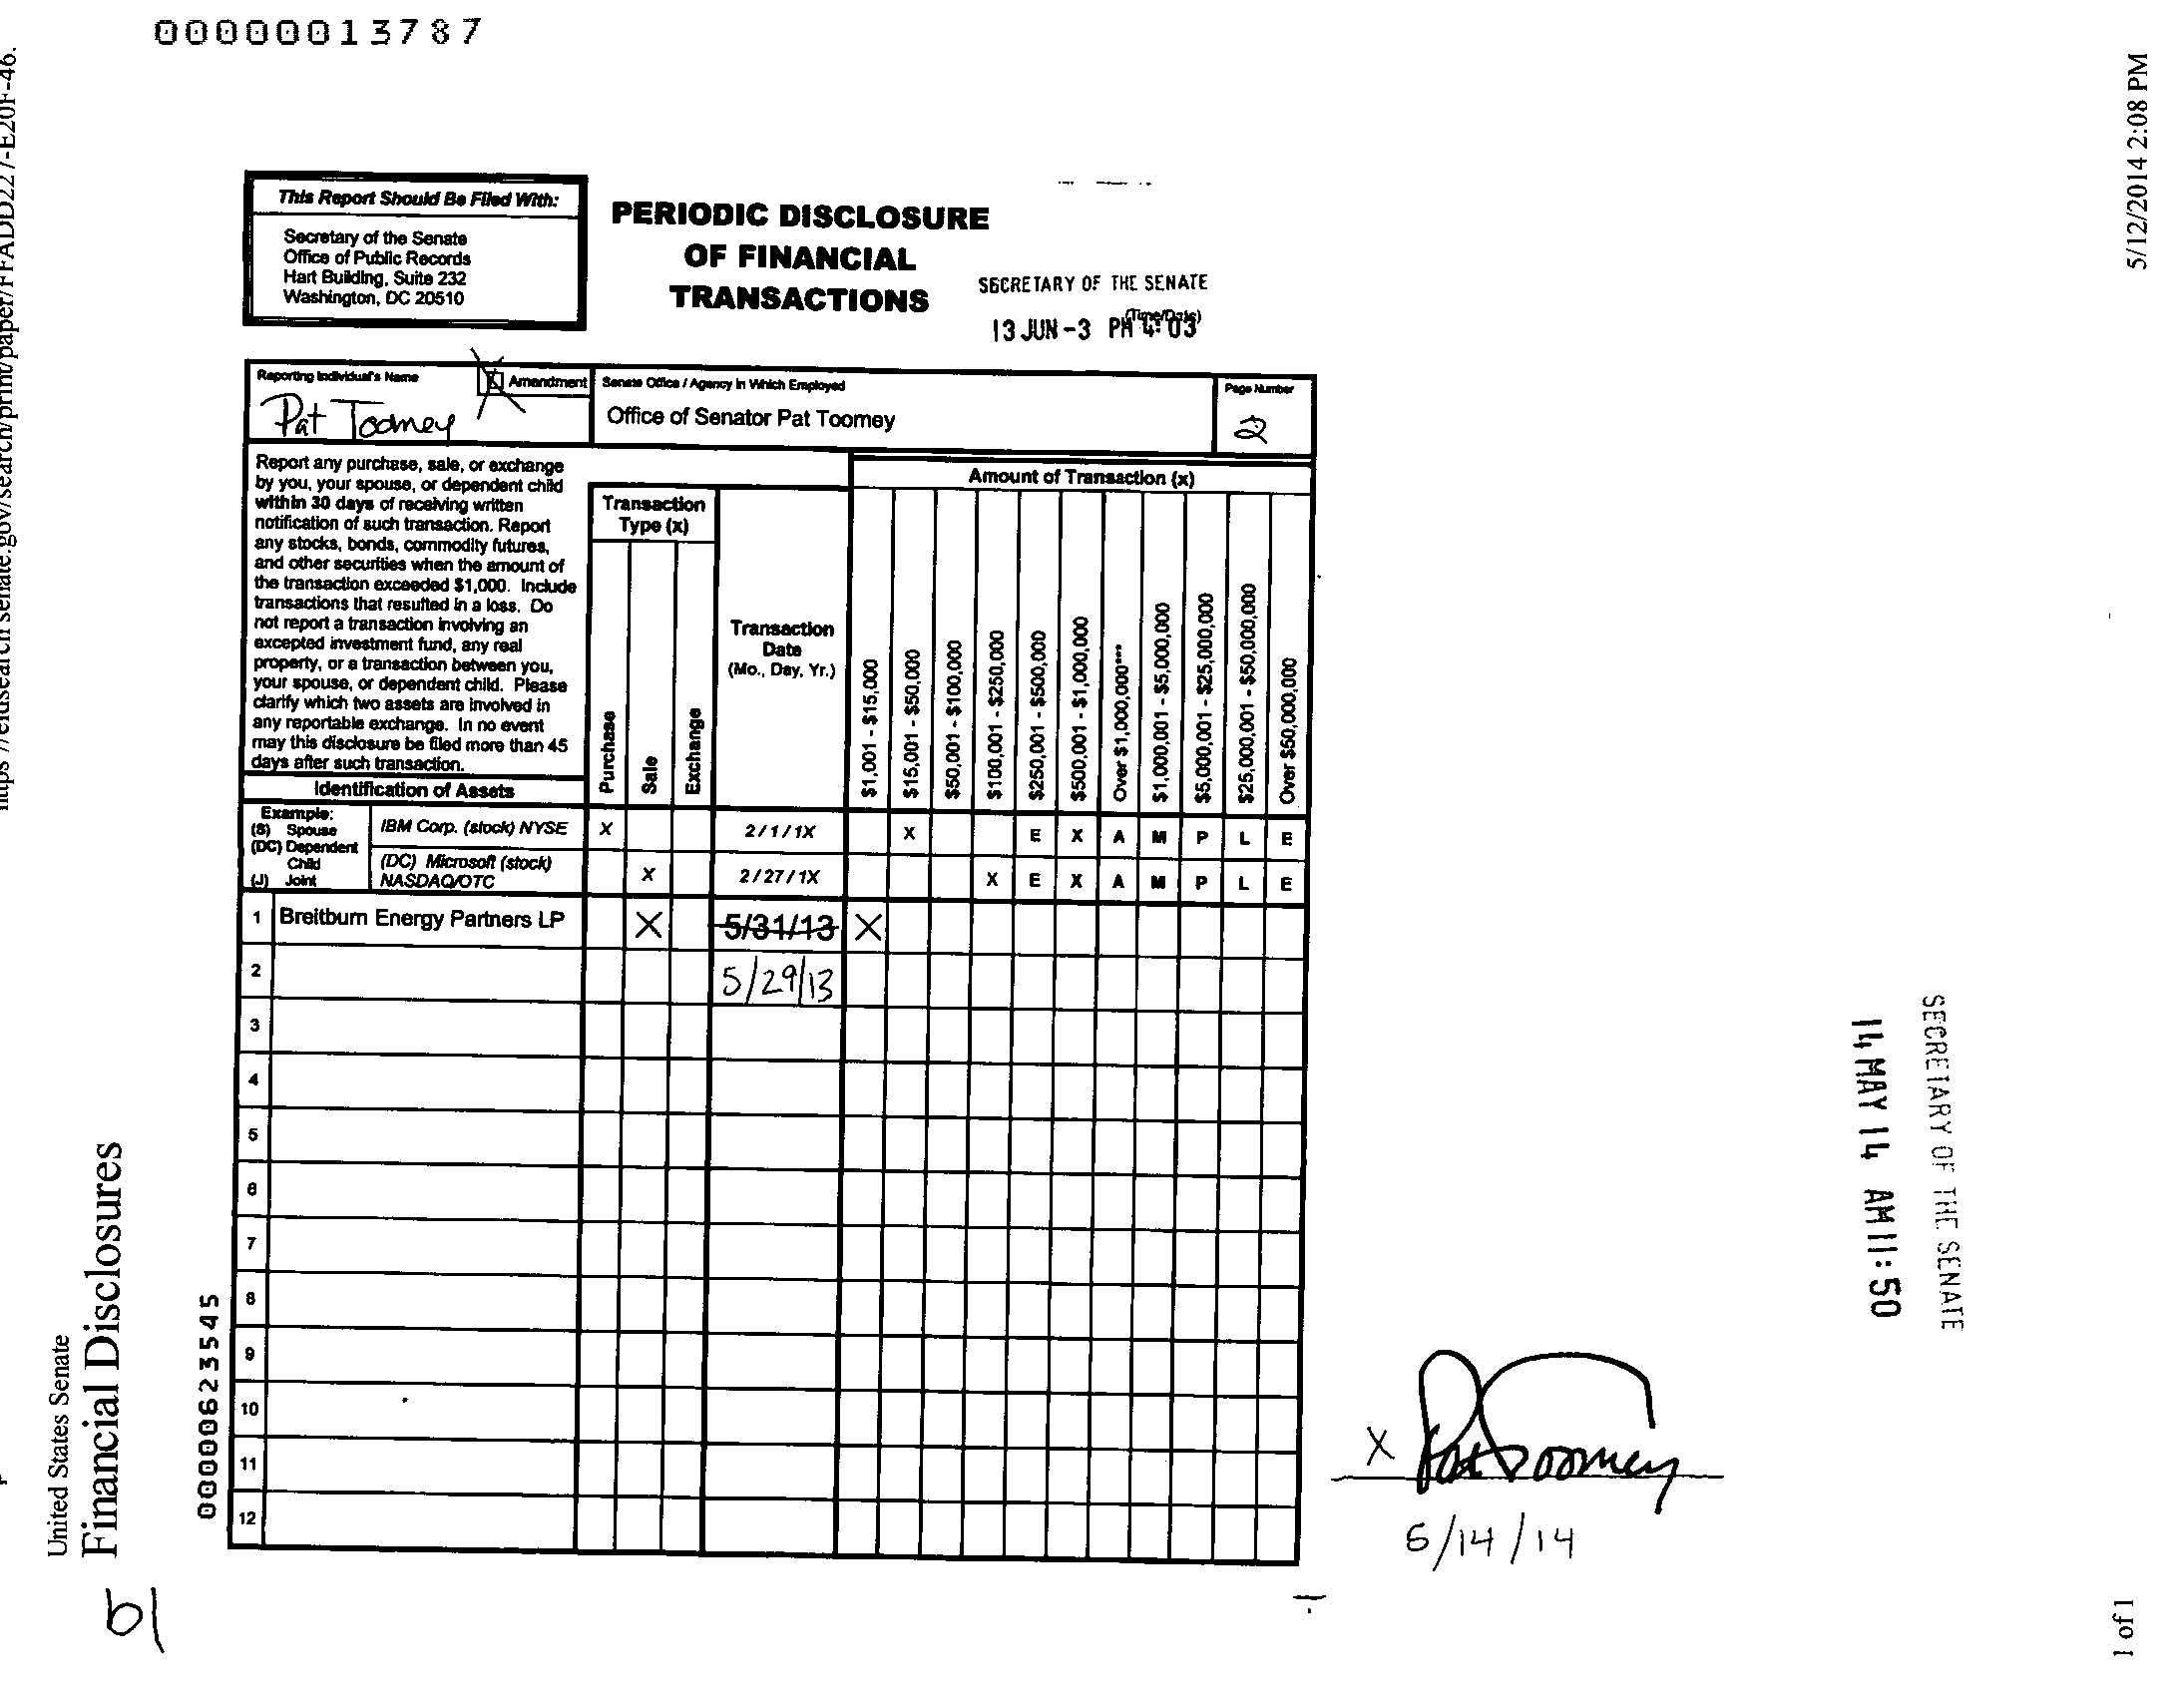 00000013787
https://efdsearch.senate.gov/search/print/paper/FFADD227-E20F-46.
5/12/2014 2:08 PM
This Report Should Be Filed With:
Secretary of the Senate
Office of Public Records
Hart Building, Suite 232
Washington, DC 20510
PERIODIC DISCLOSURE
OF FINANCIAL
TRANSACTIONS
SECRETARY OF THE SENATE
(Time/Date)
13 JUN -3 PM 4:03
Reporting Individual's Name
Amendment
Senate Office / Agency in Which Employed
Page Number
Pat Toomey
Office of Senator Pat Toomey
2
Report any purchase, sale, or exchange
by you, your spouse, or dependent child
within 30 days of receiving written
notification of such transaction. Report
any stocks, bonds, commodity futures,
and other securities when the amount of
the transaction exceeded $1,000. Include
transactions that resulted in a loss. Do
not report a transaction involving an
excepted investment fund, any real
property, or a transaction between you,
your spouse, or dependent child. Please
clarify which two assets are involved in
any reportable exchange. In no event
may this disclosure be filed more than 45
days after such transaction.
Identification of Assets
Transaction
Type (x)
Purchase
Sale
Exchange
Transaction
Date
(Mo., Day, Yr.)
Amount of Transaction (x)
$1,001 - $15,000
$15,001 - $50,000
$50,001 - $100,000
$100,001 - $250,000
$250,001 - $500,000
$500,001 - $1,000,000
Over $1,000,000***
$1,000,001 - $5,000,000
$5,000,001 - $25,000,000
$25,000,001 - $50,000,000
Over $50,000,000
Example:
(S) Spouse
(DC) Dependent
Child
(J) Joint
IBM Corp. (stock) NYSE X 2/1/1X X E X A M P L E
(DC) Microsoft (stock)
NASDAQ/OTC X 2/27/1X X E X A M P L E
1 Breitburn Energy Partners LP X 5/31/13 X
2 5/29/13
3
4
5
6
7
8
9
10
11
12
00000623545
United States Senate
Financial Disclosures
b1
SECRETARY OF THE SENATE
14 MAY 14 AM 11:50
X Pat Toomey
5/14/14
1 of 1